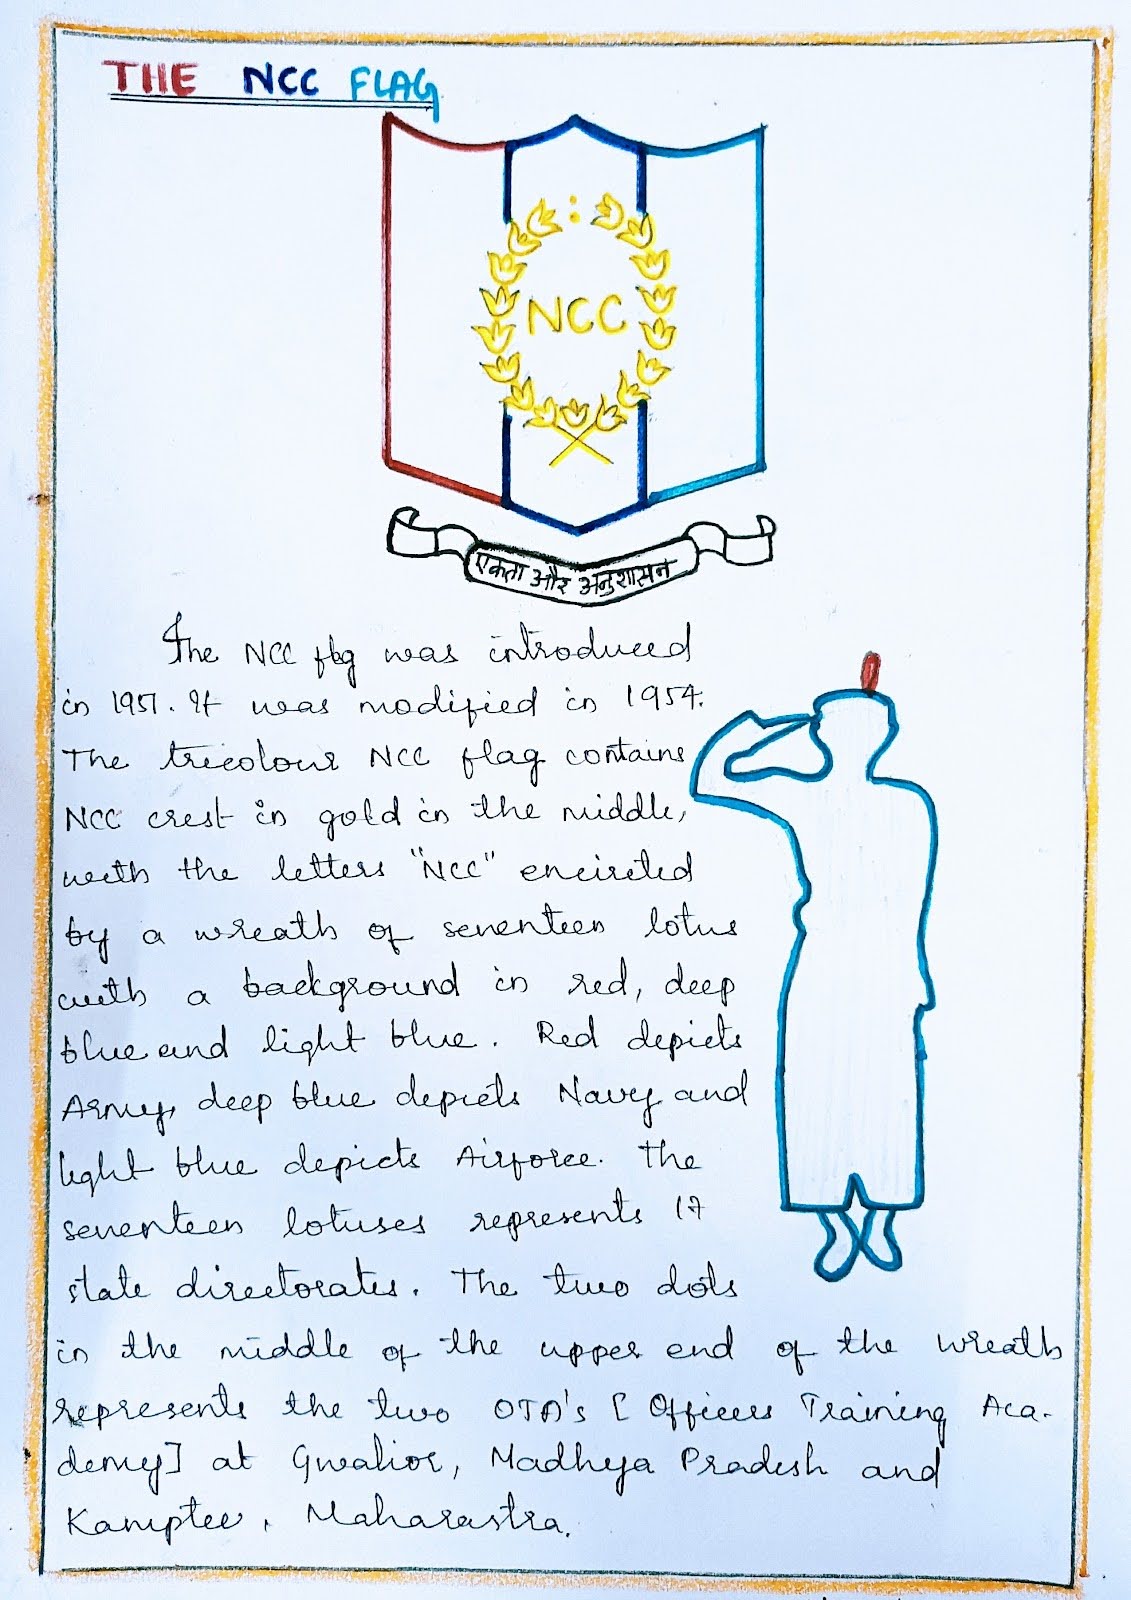 THE NCC FLAG
NCC
एकता और अनुशासन
The NCC flag was introduced
in 1951. It was modified in 1954.
The tricolour NCC flag contains
NCC crest in gold in the middle,
with the letters "NCC" encircled
by a wreath of seventeen lotus
with a background in red, deep
blue and light blue. Red depicts
Army, deep blue depicts Navy and
light blue depicts Airforce. The
seventeen lotuses represents 17
state directorates. The two dots
in the middle of the upper end of the wreath
represents the two OTA's [Officers Training Aca-
demy] at Gwalior, Madhya Pradesh and
Kamptee, Maharastra.